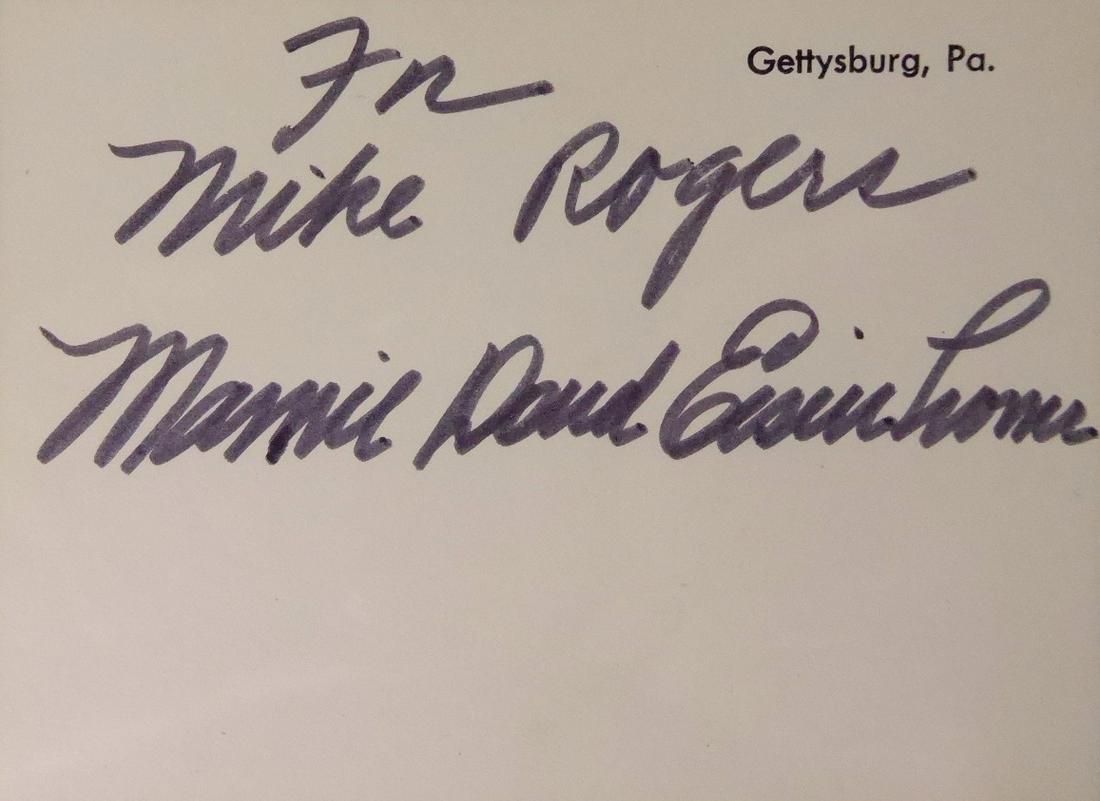 Gettysburg, Pa.
For
Mike Rogers
Mamie Doud Eisenhower